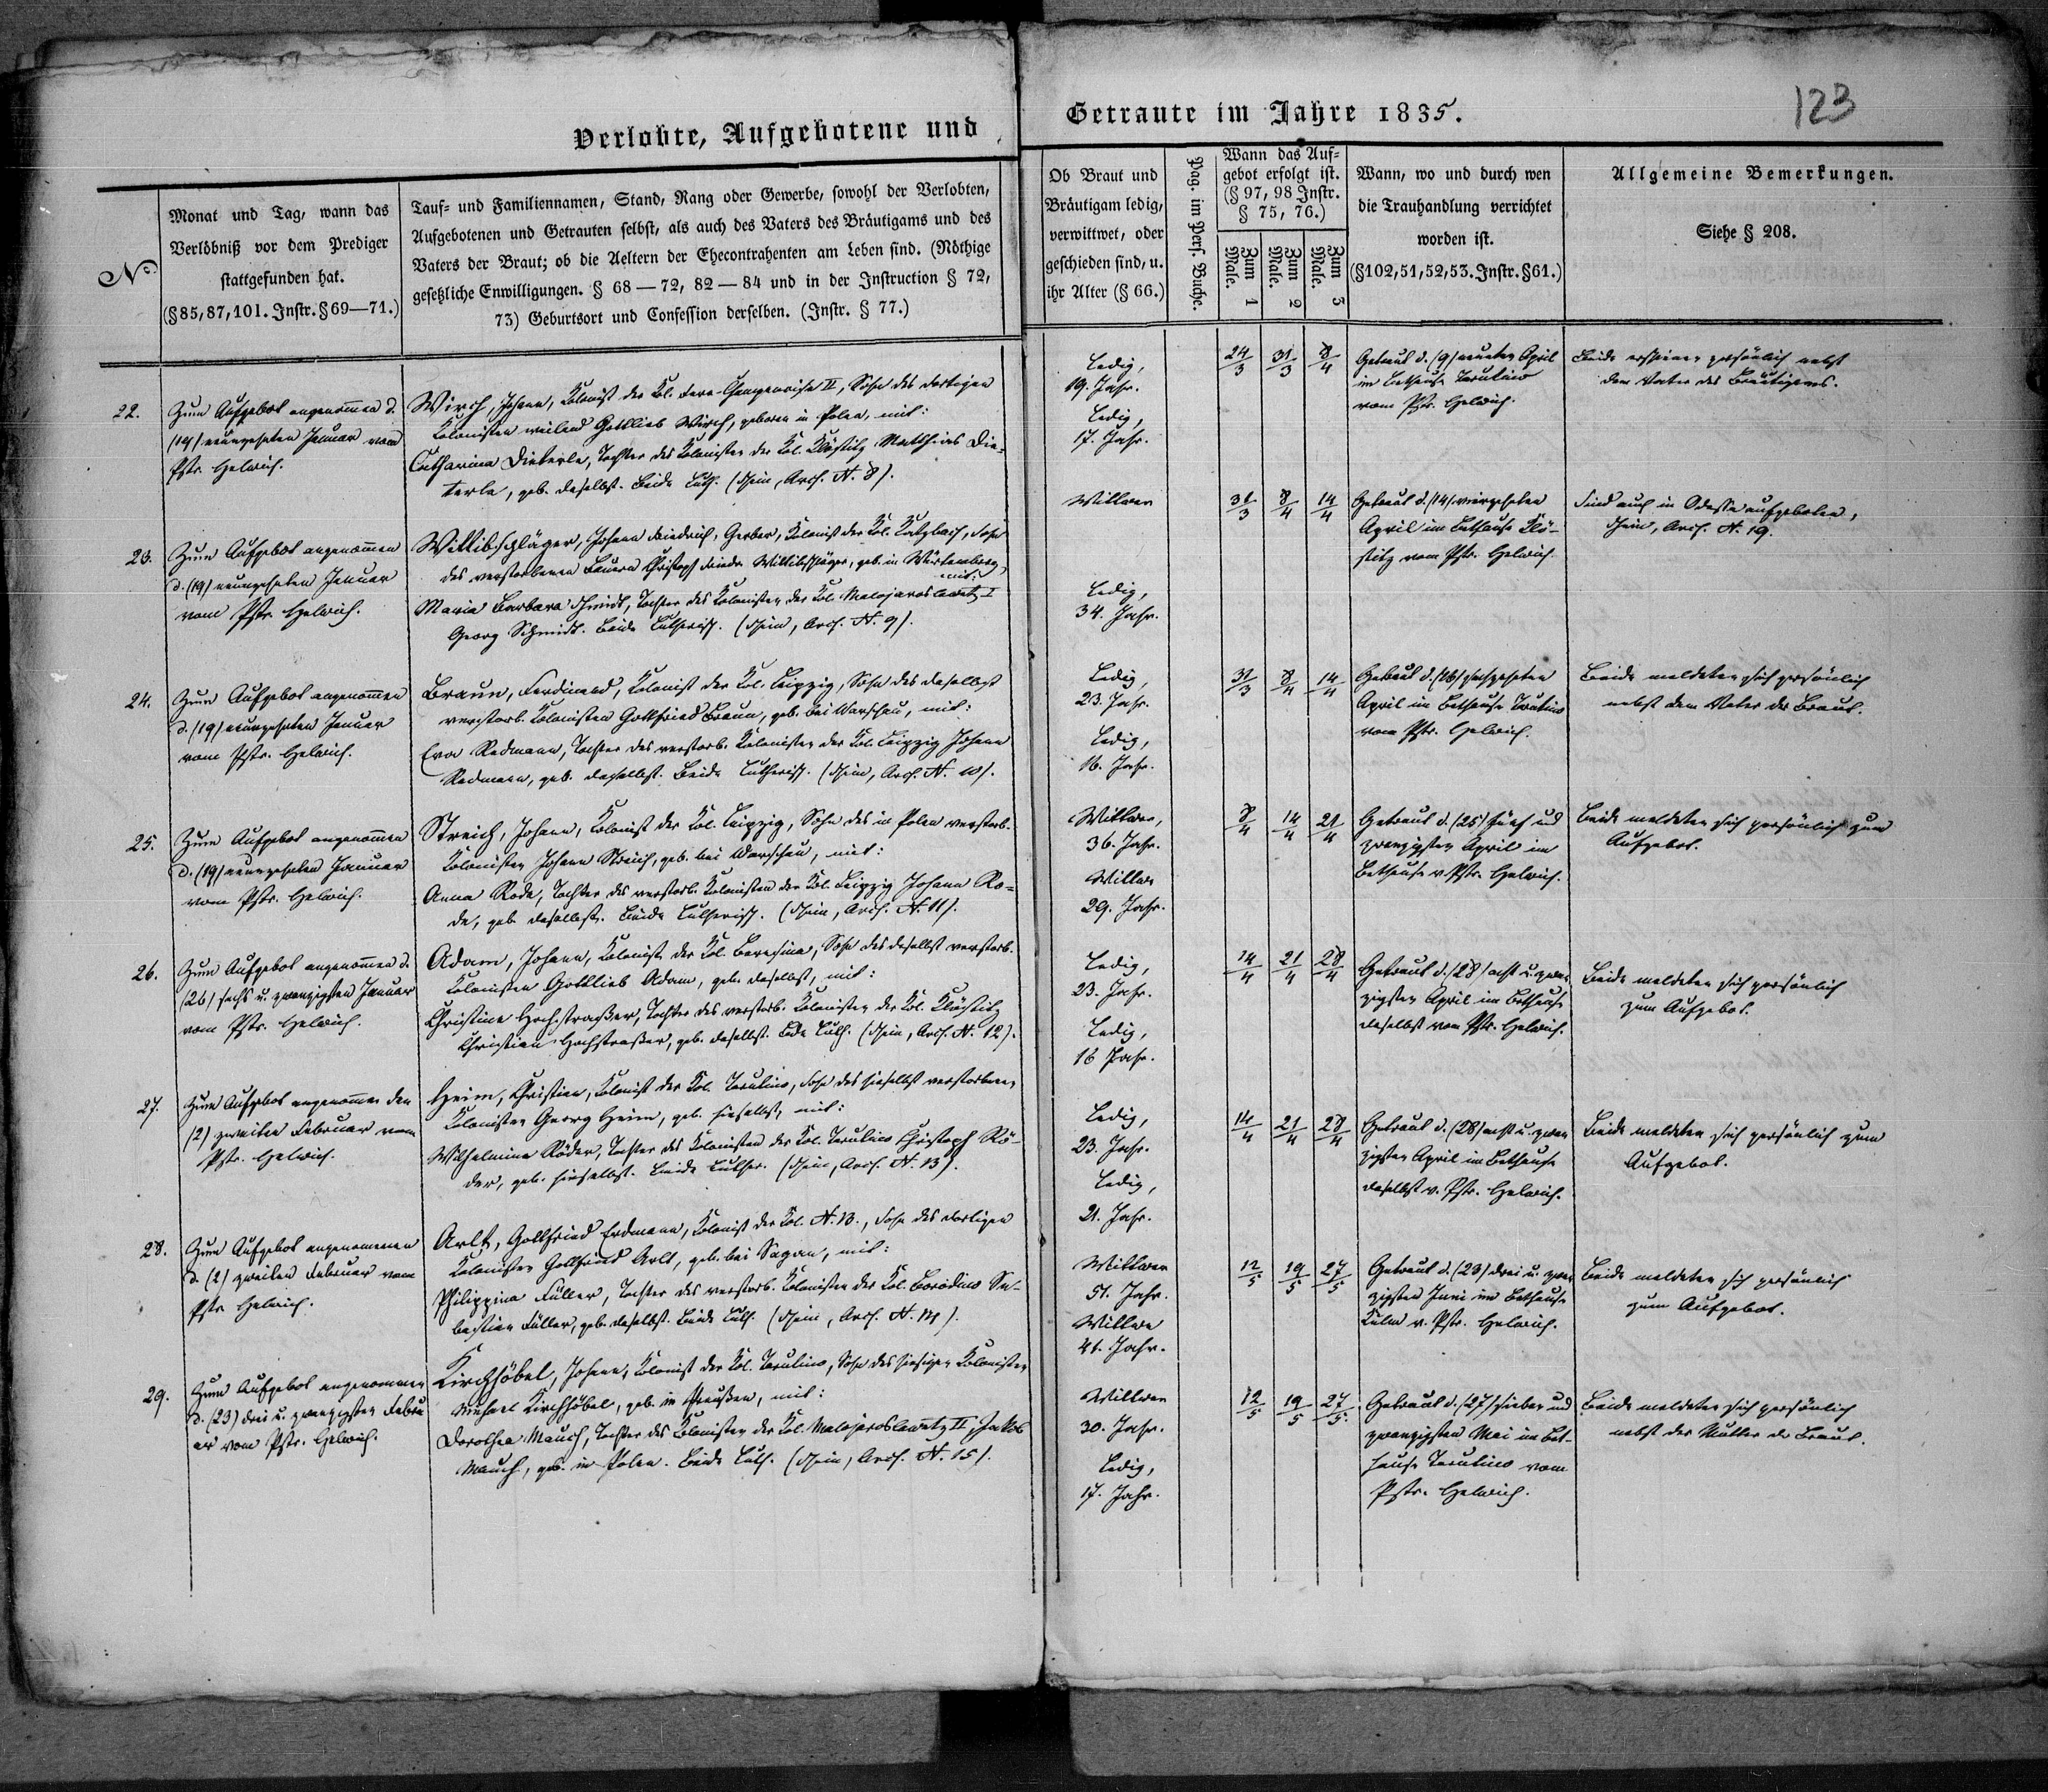 Verlobte, Aufgebotene und
Getraute im Jahre 1835.
123
No.
Monat und Tag, wann das
Verlöbniß vor dem Prediger
stattgefunden hat.
(§85, 87, 101. Instr. §69—71.)
Tauf= und Familiennamen, Stand, Rang oder Gewerbe, sowohl der Verlobten,
Aufgebotenen und Getrauten selbst, als auch des Vaters des Bräutigams und des
Vaters der Braut; ob die Aeltern der Ehecontrahenten am Leben sind. (Nöthige
gesetzliche Enwilligungen. § 68—72, 82—84 und in der Instruction § 72,
73) Geburtsort und Confession derselben. (Instr. § 77.)
Ob Braut und
Bräutigam ledig,
verwittwet, oder
geschieden sind, u.
ihr Alter (§ 66.)
Pag. im Pers. Buche.
Wann das Auf=
gebot erfolgt ist.
(§ 97, 98 Instr.
§ 75, 76.)
Zum 1 Male.
Zum 2 Male.
Zum 3 Male.
Wann, wo und durch wen
die Trauhandlung verrichtet
worden ist.
(§102, 51, 52, 53. Instr. §61.)
Allgemeine Bemerkungen.
Siehe § 208.
22.
Zum Aufgebot angenommen d.
(19) neunzehnten Januar vom
Pstr. Helwich.
Wirch, Johann, Kolonist der Kol. Fere-Champenoise II, Sohn des dortigen
Kolonisten weiland Gottlieb Wirch, geboren in Polen, mit:
Catharina Dieterle, Tochter des Kolonisten der Kol. Klöstitz Matthias Die-
terle, geb. daselbst. Beide Luth. (Schein, Arch. N. 8).
Ledig,
19. Jahr.
Ledig,
17. Jahr.
24/3 31/3 8/4
Getraut d. (9) neunten April
im Bethause Tarutino
vom Pstr. Helwich.
Beide erschienen persönlich nebst
dem Vater des Bräutigams.
23.
Zum Aufgebot angenommen
d. (19) neunzehnten Januar
vom Pstr. Helwich.
Wittibschläger, Johann Friedrich, Gerber, Kolonist der Kol. Katzbach, Sohn
des verstorbenen Bauern Christoph Friedr. Wittibschläger, geb. in Würtemberg,
mit:
Maria Barbara Schmidt, Tochter des Kolonisten der Kol. Malojaroslawetz I
Georg Schmidt. Beide Lutherisch. (Schein, Arch. N. 9).
Wittwer
Ledig,
34. Jahr.
31/3 8/4 14/4
Getraut d. (14) vierzehnten
April im Bethause Klö-
stitz vom Pstr. Helwich.
Sind auch in Odessa aufgeboten,
Schein, Arch. N. 19.
24.
Zum Aufgebot angenommen
d. (19) neunzehnten Januar
vom Pstr. Helwich.
Braun, Ferdinand, Kolonist der Kol. Leipzig, Sohn des daselbst
verstorb. Kolonisten Gottfried Braun, geb. bei Warschau, mit:
Eva Redmann, Tochter des verstorb. Kolonisten der Kol. Leipzig Johann
Redmann, geb. daselbst. Beide Lutherisch. (Schein, Arch. N. 10).
Ledig,
23. Jahr.
Ledig,
16. Jahr.
31/3 8/4 14/4
Getraut d. (16) sechszehnten
April im Bethause Tarutino
vom Pstr. Helwich.
Beide meldeten sich persönlich
nebst dem Vater der Braut.
25.
Zum Aufgebot angenommen
d. (19) neunzehnten Januar
vom Pstr. Helwich.
Streich, Johann, Kolonist der Kol. Leipzig, Sohn des in Polen verstorb.
Kolonisten Johann Streich, geb. bei Warschau, mit:
Anna Rode, Tochter des verstorb. Kolonisten der Kol. Leipzig Johann Ro-
de, geb. daselbst. Beide Lutherisch. (Schein, Arch. N. 11).
Wittwer,
36. Jahr.
Wittwe
29. Jahr.
8/4 14/4 21/4
Getraut d. (25) fünf und
zwanzigsten April im
Bethause v. Pstr. Helwich.
Beide meldeten sich persönlich zum
Aufgebot.
26.
Zum Aufgebot angenommen d.
(26) sechs u. zwanzigsten Januar
vom Pstr. Helwich.
Adam, Johann, Kolonist der Kol. Beresina, Sohn des daselbst verstorb.
Kolonisten Gottlieb Adam, geb. daselbst, mit:
Christine Hochstraßer, Tochter des verstorb. Kolonisten der Kol. Klöstitz
Christian Hochstraßer, geb. daselbst. Beide Luth. (Schein, Arch. N. 12).
Ledig,
23. Jahr.
Ledig,
16 Jahr.
14/4 21/4 28/4
Getraut d. (28) acht u. zwan
zigsten April im Bethause
daselbst vom Pstr. Helwich.
Beide meldeten sich persönlich
zum Aufgebot.
27.
Zum Aufgebot angenommen den
(2) zweiten Februar vom
Pstr. Helwich.
Heim, Christian, Kolonist der Kol. Tarutino, Sohn des hieselbst verstorbenen
Kolonisten Georg Heim, geb. hieselbst, mit:
Wilhelmine Röder, Tochter des Kolonisten der Kol. Tarutino Christoph Rö-
der, geb. hieselbst. Beide Luther. (Schein, Arch. N. 13).
Ledig,
23. Jahr.
Ledig,
21. Jahr.
14/4 21/4 28/4
Getraut d. (28) acht u. zwan
zigsten April im Bethause
daselbst v. Pstr. Helwich.
Beide meldeten sich persönlich zum
Aufgebot.
28.
Zum Aufgebot angenommen
d. (2) zweiten Februar vom
Pstr. Helwich.
Arlt, Gottfried Erdmann, Kolonist der Kol. N. 13., Sohn des dortigen
Kolonisten Gottfried Arlt, geb. bei Sagan, mit:
Philippina Füller, Tochter des verstorb. Kolonisten der Kol. Borodino Se-
bastian Füller, geb. daselbst. Beide Luth. (Schein, Arch. N. 14).
Wittwer
51. Jahr.
Wittwe
41. Jahr.
12/5 19/5 27/5
Getraut d. (23) drei u. zwan
zigsten Juni im Bethause
Kulm v. Pstr. Helwich.
Beide meldeten sich persönlich
zum Aufgebot.
29.
Zum Aufgebot angenommen
d. (23) drei u. zwanzigsten Febru
ar vom Pstr. Helwich.
Kirchhöbel, Johann, Kolonist der Kol. Tarutino, Sohn des hiesigen Kolonisten
Michael Kirchhöbel, geb. in Preußen, mit:
Dorothea Mauch, Tochter des Kolonisten der Kol. Malojaroslawetz II Jakob
Mauch, geb. in Polen. Beide Luth. (Schein, Arch. N. 15).
Wittwer
30. Jahr.
Ledig,
17. Jahr.
12/5 19/5 27/5.
Getraut d. (27) sieben und
zwanzigsten Mai im Bet-
hause Tarutino vom
Pstr. Helwich.
Beide meldeten sich persönlich
nebst der Mutter der Braut.